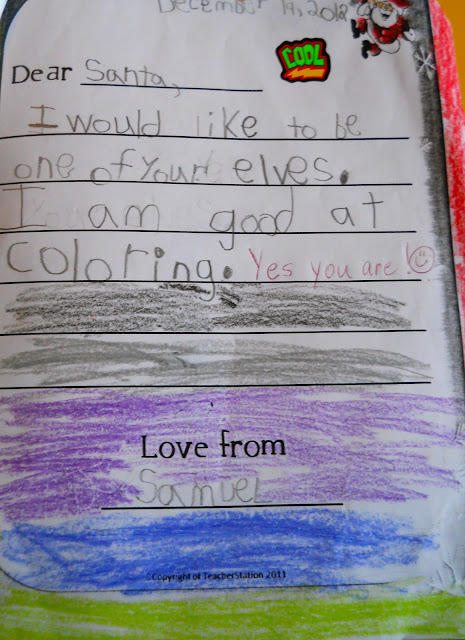 December 19, 2012
COOL
Dear Santa,
I would like to be
one of your elves.
I am good at
coloring. Yes you are!
Love from
Samuel
©Copyright of TeacherStation 2011